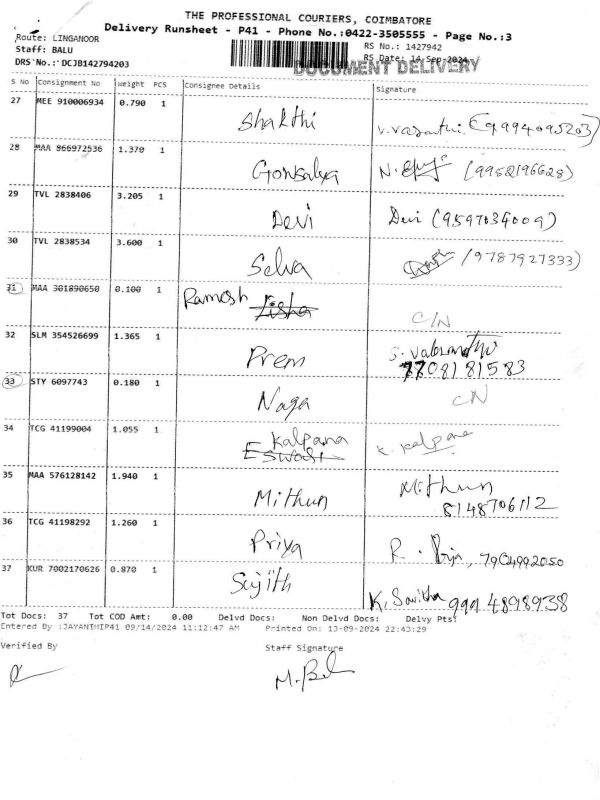 THE PROFESSIONAL COURIERS, COIMBATORE
Delivery Runsheet - P41 - Phone No.:0422-3505555 - Page No.:3
Route: LINGANOOR RS No.: 1427942
Staff: BALU RS Date: 14-Sep-2024
DRS No.: DCJB142794203 DOCUMENT DELIVERY
S No Consignment No Weight PCS Consignee Details Signature
27 MEE 910006934 0.790 1 Shakthi
28 MAA 866972536 1.370 1 Gonsalya (9952196628)
29 TVL 2838406 3.205 1 Devi Devi (9597034009)
30 TVL 2838534 3.600 1 Selva (9787927333)
31 MAA 301890650 0.100 1 Ramesh C/N
32 SLM 354526699 1.365 1 Prem
7708181583
33 STY 6097743 0.180 1 Naga CN
34 TCG 41199004 1.055 1 Kalpana K. Kalpana
Eswari
35 MAA 576128142 1.940 1 Mithun Mithun
8148706112
36 TCG 41198292 1.260 1 Priya R. 7904992050
37 KUR 7002170626 0.870 1 Sujith K. Savitha 999 4898938
Tot Docs: 37 Tot COD Amt: 0.00 Delvd Docs: Non Delvd Docs: Delvy Pts:
Entered By :JAYANTHIP41 09/14/2024 11:12:47 AM Printed On: 13-09-2024 22:43:29
Verified By Staff Signature